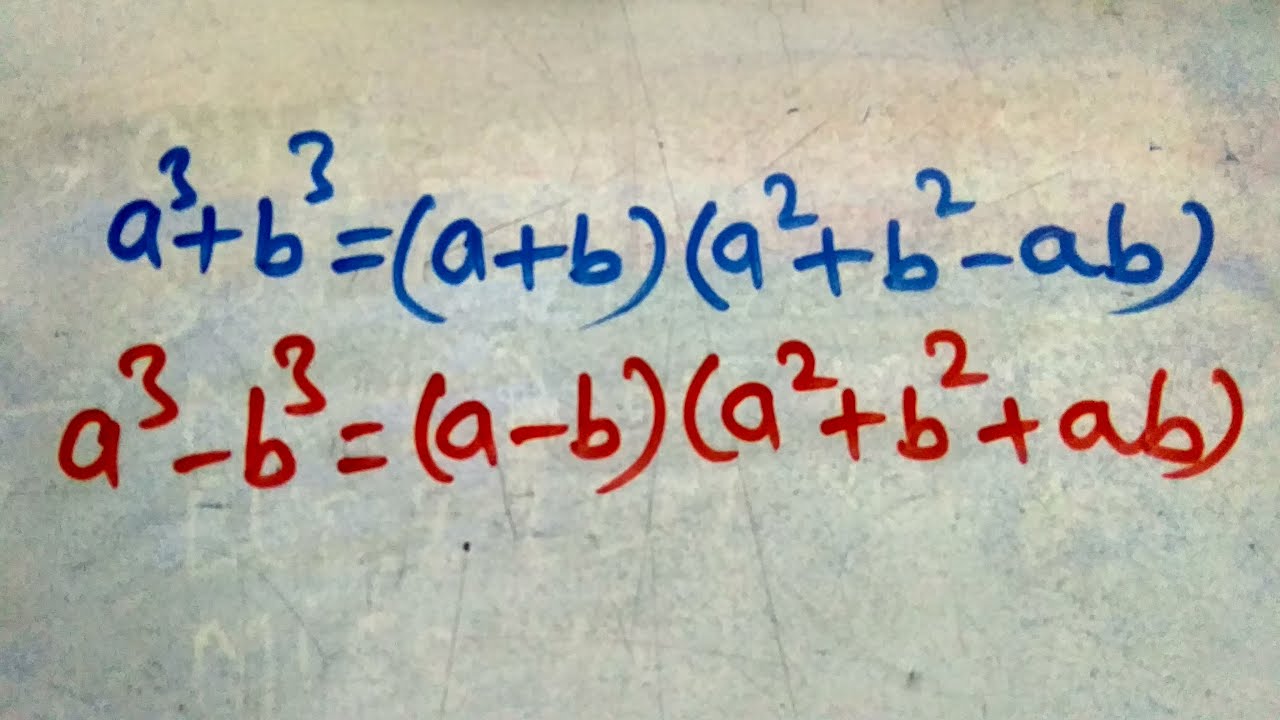 a³+b³=(a+b)(a²+b²-ab)
a³-b³=(a-b)(a²+b²+ab)